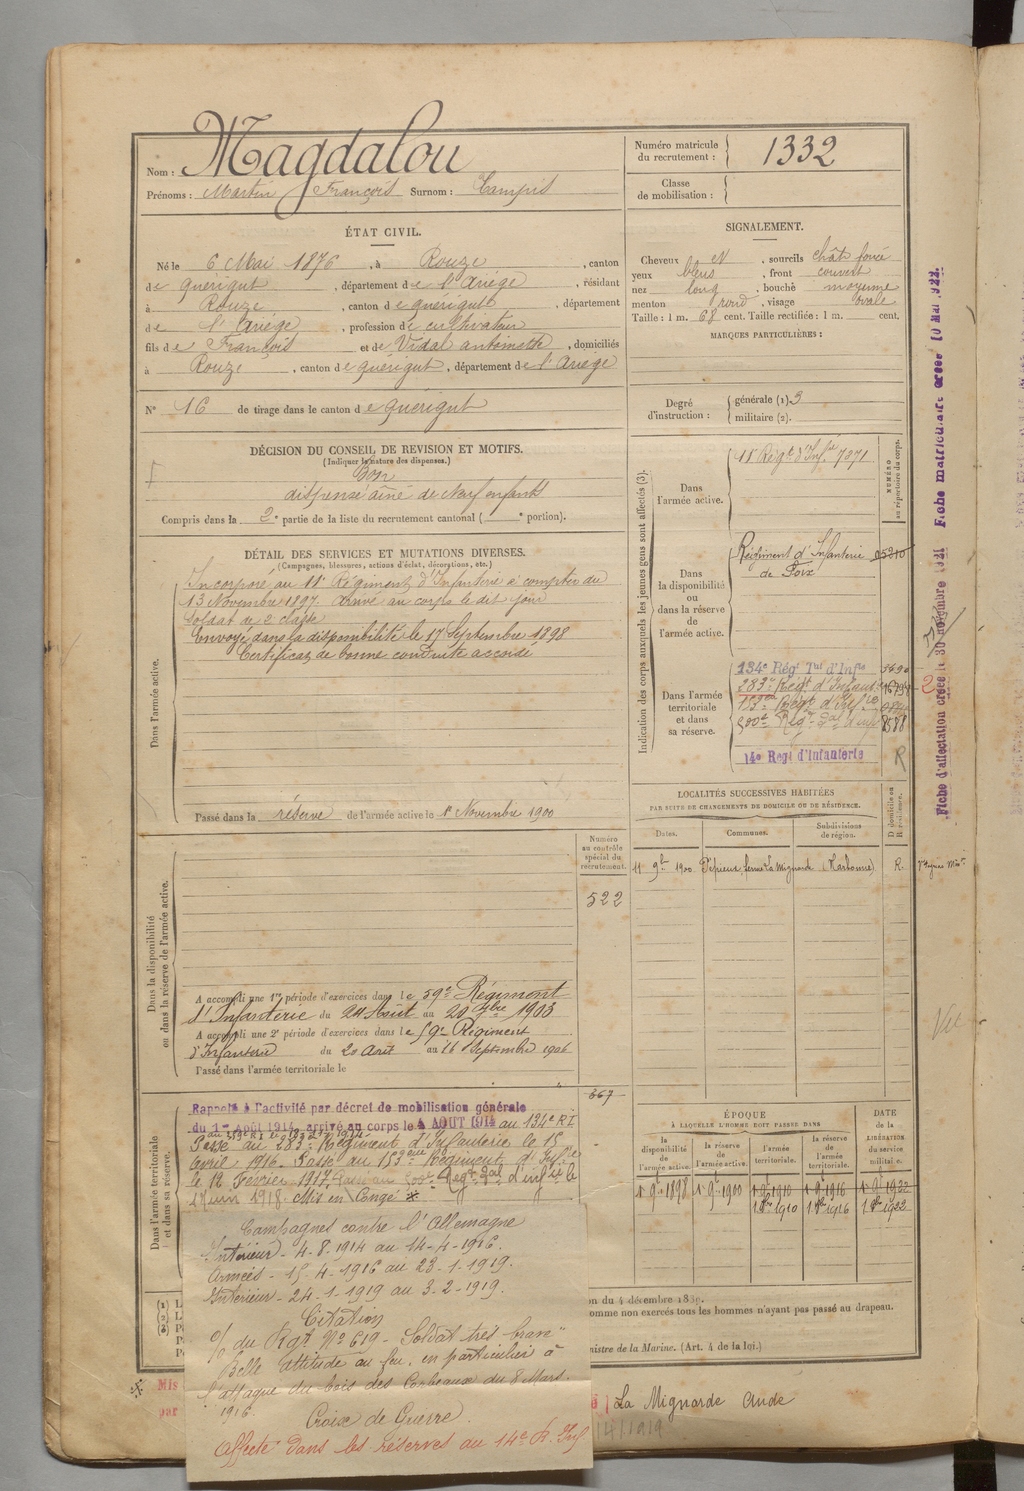 Nom : Magdalou
Prénoms : Martin François Surnom : Campis
Numéro matricule
du recrutement : 1332
Classe
de mobilisation :
ÉTAT CIVIL.
Né le 6 Mai 1876, à Rouze, canton
de Quérigut, département de l'Ariège, résidant
à Rouze, canton de Quérigut, département
de l'Ariège, profession de cultivateur
fils de François et de Vidal antoinette, domiciliés
à Rouze, canton de Quérigut, département de l'Ariège
N° 16 de tirage dans le canton de Quérigut
SIGNALEMENT.
Cheveux et, sourcils chât foncé
yeux bleus, front couvert
nez long, bouche moyenne
menton rond, visage ovale
Taille : 1 m. 68 cent. Taille rectifiée : 1 m. cent.
MARQUES PARTICULIÈRES :
Degré
d'instruction :
générale (1) 3
militaire (2).
DÉCISION DU CONSEIL DE REVISION ET MOTIFS.
(Indiquer la nature des dispenses.)
Bon
dispensé aîné de Neuf enfants
Compris dans la 2e partie de la liste du recrutement cantonal (e portion).
DÉTAIL DES SERVICES ET MUTATIONS DIVERSES.
(Campagnes, blessures, actions d'éclat, décorations, etc.)
Dans l'armée active.
Incorporé au 11e Régiment d'Infanterie à compter du
13 Novembre 1897. Arrivé au corps le dit jour
soldat de 2e classe
Envoyé dans la disponibilité le 17 Septembre 1898
Certificat de bonne conduite accordé
Passé dans la réserve de l'armée active le 1er Novembre 1900
Indication des corps auxquels les jeunes gens sont affectés (3).
NUMÉRO
au répertoire du corps.
Dans
l'armée active.
11e Régt d'Infie 7271
Dans
la disponibilité
ou
dans la réserve
de
l'armée active.
Régiment d'Infanterie 05210
de Foix
Dans l'armée
territoriale
et dans
sa réserve.
134e Régt Tal d'Infie
283e Régt d'Infant
153e Régt d'Infie
14e Regt d'Infanterie R
LOCALITÉS SUCCESSIVES HABITÉES
PAR SUITE DE CHANGEMENTS DE DOMICILE OU DE RÉSIDENCE.
D. domicile ou
R. résidence.
Dates.
Communes.
Subdivisions
de région.
11 9bre 1900 Pépieux, ferme La Mignarde (Narbonne) R.
Numéro
au contrôle
spécial du
recrutement.
522
Dans la disponibilité
ou dans la réserve de l'armée active.
A accompli une 1re période d'exercices dans le 59e Régiment
d'Infanterie du 24 Août au 20 7bre 1903
A accompli une 2e période d'exercices dans le 59e Régiment
d'Infanterie du 20 Août au 16 Septembre 1906
Passé dans l'armée territoriale le
667
Dans l'armée territoriale
et dans sa réserve.
Rappelé à l'activité par décret de mobilisation générale
du 1er Août 1914, arrivé au corps le 4 AOUT 1914 au 134e R I
Passé au 283e Régiment d'Infanterie le 15
Avril 1916. Passé au 153ème Régiment d'Infie
le 12 Février 1917
1 Juin 1918. Mis en Congé
ÉPOQUE
À LAQUELLE L'HOMME DOIT PASSER DANS
la
disponibilité
de
l'armée active.
la réserve
de
l'armée active.
l'armée
territoriale.
la réserve
de
l'armée
territoriale.
DATE
de la
LIBÉRATION
du service
militaire.
1 9bre 1898 1 9bre 1900 1 9bre 1910 1 9bre 1916 1 9bre 1922
1910 1916 1922
Campagnes contre l'Allemagne
Intérieur - 4-8-1914 au 14-4-1916.
Armées - 15-4-1916 au 23-1-1919.
Intérieur - 24-1-1919 au 3-2-1919.
Citation
o/ du Rgt N° 619 - Soldat très brave
Belle attitude au feu, en particulier à
l'attaque du bois des Corbeaux du 8 Mars
1916.
Croix de Guerre
Affecté dans les réserves au 14e R. Inf.
on du 4 décembre 1889.
omme non exercés tous les hommes n'ayant pas passé au drapeau.
nistre de la Marine. (Art. 4 de la loi.)
Mis
par
La Mignarde Aude
1919
Fiche d'affectation créée le 30 novembre 1921 Fiche matriculaire créée 10 Mai 1922.
Vu